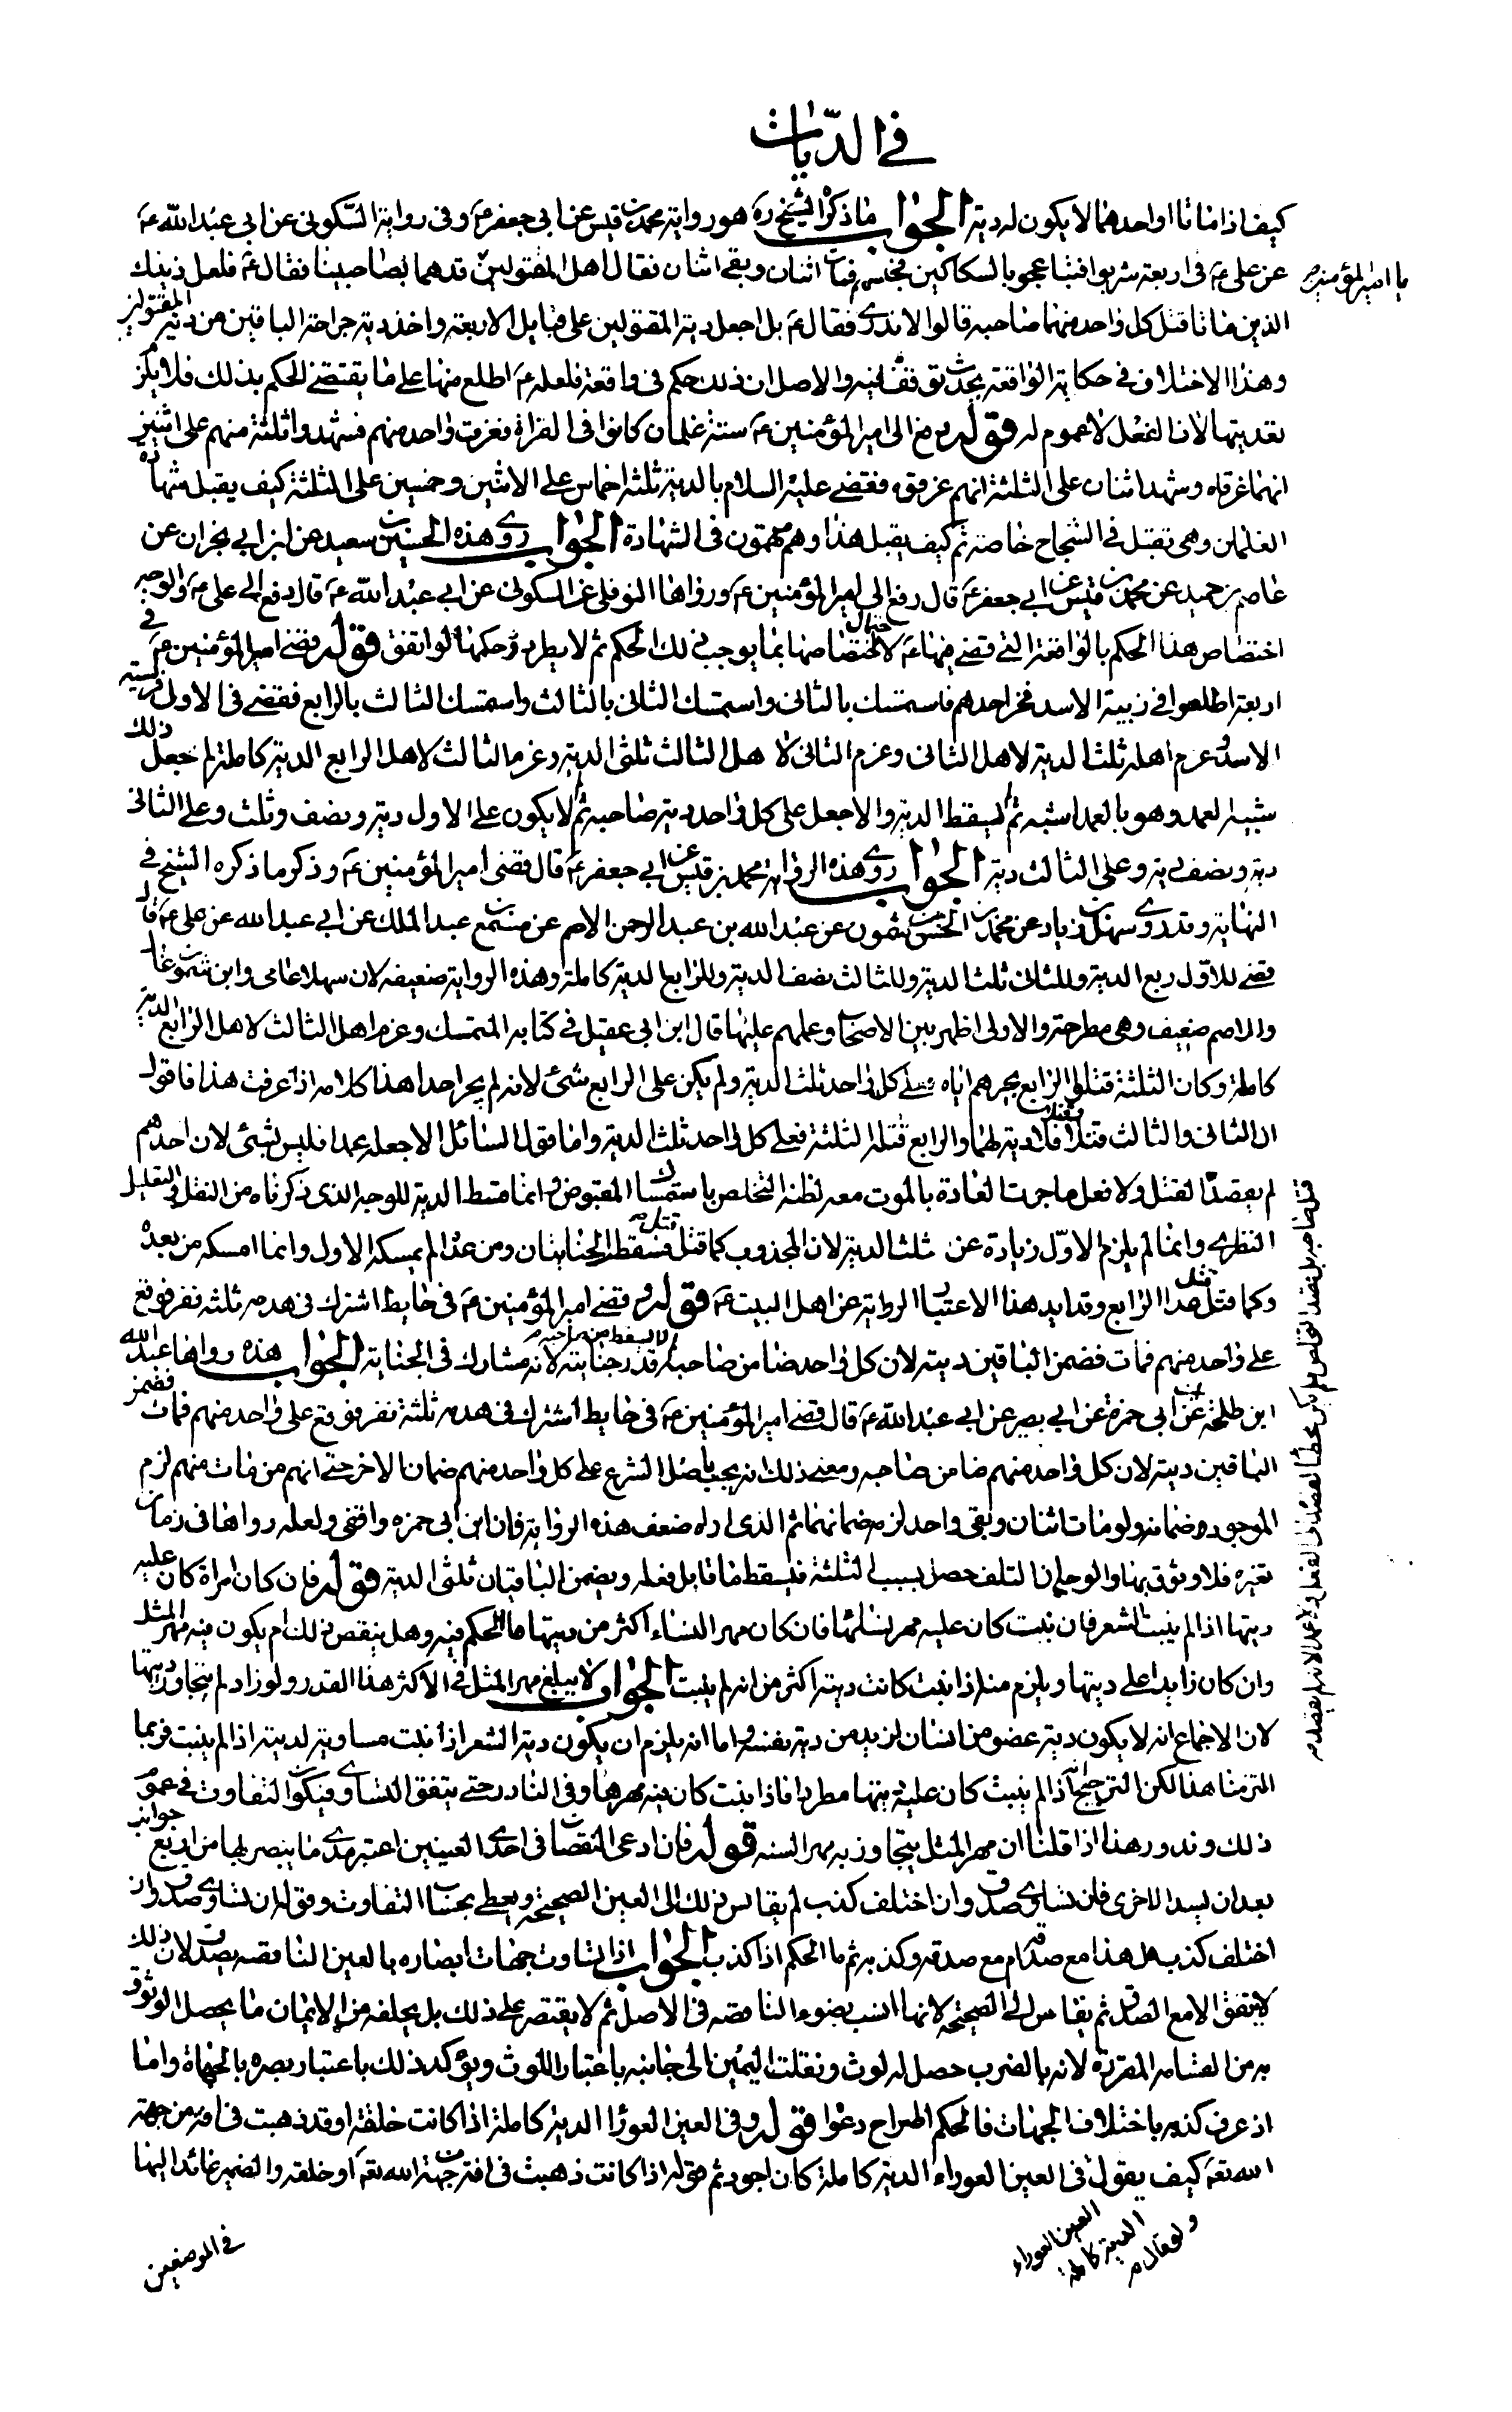 في الديات
كيف اذا ماتا او احدهما لا يكون له دية الجواب ما ذكره الشيخ ره هو رواية محمد بن قيس عن ابي جعفر ع وفى رواية السكوني عن ابي عبد الله ع
عن علي ع في اربعة شربوا فتباعجوا بالسكاكين فمات اثنان وبقى اثنان فقال اهل المقتولين قدهما بصاحبينا فقال ع فلعل ذينك
يا امير المؤمنين
الذين ماتا قتل كل واحد منهما صاحبه قالوا لا ندري فقال ع بل اجعل دية المقتولين على قبايل الاربعة واخذ دية جراحة الباقين من دية المقتولين
وهذا الاختلاف في حكاية الواقعة يحدث توقفا فيه والاصل ان ذلك حكم فى واقعة فلعله ع اطلع منها على ما يقتضي الحكم بذلك فلا يلزم
تعديتها لان الفعل لا عموم له قوله رفع الى امير المؤمنين ع ستة غلمان كانوا فى الفراة فغرق واحد منهم فشهدوا ثلثة منهم على اثنين
انهما غرقاه وشهد اثنان على الثلثة انهم غرقوه فقضى عليه السلام بالدية ثلثة اخماس على الاثنين وخمسين على الثلثة كيف يقبل شهادة
الغلمان وهى تقبل في الشجاح خاصة ثم كيف يقبل هذا وهم متهمون فى الشهادة الجواب روى هذه الحسين بن سعيد عن ابن ابي نجران عن
عاصم بن حميد عن محمد بن قيس عن ابي جعفر ع قال رفع الى امير المؤمنين ع ورواها النوفلى عن السكونى عن ابي عبد الله ع قال رفع الى علي ع والوجه
اختصاص هذا الحكم بالواقعة التى قضى فيها ع لاحتمال اختصاصها بما يوجب ذلك الحكم ثم لا يطرد حكمها لو اتفق قوله قضى امير المؤمنين ع في
اربعة اطلعوا في زبية الاسد فخر احدهم فاستمسك بالثانى واستمسك الثانى بالثالث واستمسك الثالث بالرابع فقضى فى الاول فريسة
الاسد وغرم اهله ثلث الدية لاهل الثانى وغرم الثانى لاهل الثالث ثلثى الدية وغرم الثالث لاهل الرابع الدية كاملة لم جعل ذلك
شبيه العمد وهو بالعمد اشبه ثم لم يسقط الدية والا جعل على كل واحد دية صاحبه ثم لا يكون على الاول دية ونصف وثلث وعلى الثانى
دية ونصف دية وعلى الثالث دية الجواب روى هذه الرواية محمد بن قيس عن ابي جعفر ع قال قضى امير المؤمنين ع وذكر ما ذكره الشيخ في
النهاية وقد روى سهل بن زياد عن محمد بن الحسن بن شمون عن عبد الله بن عبد الرحمن الاصم عن مسمع بن عبد الملك عن ابي عبد الله عن علي ع قال
قضى للاول ربع الدية وللثانى ثلث الدية وللثالث نصف الدية وللرابع الدية كاملة وهذه الرواية ضعيفة لان سهلا عامى وابن شمون غال
والاصم ضعيف وهى مطرحة والاولى اظهر بين الاصحاب وعملهم عليها قال ابن ابي عقيل في كتابه المتمسك وغرم اهل الثالث لاهل الرابع الدية
كاملة وكان الثلثة قتلوا الرابع بجرهم اياه فعلى كل واحد ثلث الدية ولم يكن على الرابع شئ لانه لم يجر احدا هذا كلامه اذا عرفت هذا فاقول
ان الثانى والثالث قتلا فلا دية لهما والرابع قتله الثلثة فعلى كل واحد ثلث الدية واما قول السائل الا جعله عمدا فليس بشئ لان احدهم
لم يقصد القتل ولا فعل ما جرت العادة بالموت معه لظنه التخلص باستمساك المقبوض وانما قسط الدية للوجه الذى ذكرناه من النقل والتعليل
النظرى وانما لم يلزم الاول زيادة عن ثلث الدية لان المجذوب كما قتل قتل فسقط الجنايتان ومن عداه لم يمسكه الاول وانما امسكه من بعده
وكما قتل هذا قتل الرابع وقد ايد هذا الاعتبار الرواية عن اهل البيت ع قوله وقضى امير المؤمنين ع فى حايط اشترك فى هدمه ثلثة نفر فوقع
على واحد منهم فمات فضمن الباقين ديته لان كل واحد ضامن صاحبه الا يسقط من صاحبه قدر جنايته لانه مشارك فى الجناية الجواب هذه رواها عبد الله
ابن طلحة عن ابن ابى حمزة عن ابى بصير عن ابى عبد الله ع قال قضى امير المؤمنين ع فى حايط اشترك فى هدمه ثلثة نفر فوقع على واحد منهم فمات فضمن
الباقين ديته لان كل واحد منهم ضامن صاحبه ومعنى ذلك انه يجب باصل الشرع على كل واحد منهم ضمان الاخر حتى انهم من مات منهم لزم
الموجود ضمانه ولو مات اثنان وبقى واحد لزمه ضمانهما ثم الذى اراه ضعف هذه الرواية فان ابن ابى حمزه واقفى ولعله رواها فى زمان
تغيره فلا وثوق بها والوجه ان التلف حصل بسبب الثلثة فيسقط ما قابل فعله ويضمن الباقيان ثلثى الدية قوله فان كان امراة كان عليه
ديتها اذا لم ينبت الشعر فان نبت كان عليه مهر نسائها فان كان مهر النساء اكثر من ديتها ما الحكم فيه وهل ينقص ذلك ام يكون فيه مهر المثل
وان كان زايدا على ديتها ويلزم منه اذا نبت كانت ديته اكثر من انه لم ينبت الجواب لا يبلغ مهر المثل فى الاكثر هذا القدر ولو زاد لم يتجاوز ديتها
لان الاجماع انه لا يكون دية عضو من انسان ازيد من دية نفسه واما انه يلزم ان يكون دية الشعر اذا نبت مساوية لديته اذا لم ينبت فربما
التزمنا هذا لكن الترجيح انه اذا لم ينبت كان عليه ديتها مطردا فاذا نبت كان فيه مهرها وفى النادر حتى يتفق التساوى فيكون التفاوت فى عموم
ذلك وندور هذا اذا قلنا ان مهر المثل يتجاوز به مهر السنه قوله فان ادعى النقصان فى احدى العينين اعتبر مدى ما يبصر بها من اربع جوانب
بعد ان يسد الاخرى فان تساوى صدق وان اختلف كذب لم يقاس ذلك الى العين الصحيحة ويعطى بحساب التفاوت وقوله ان تساوى صدق وان
اختلف كذب هل هذا مع صدقه ام مع صدقه وكذبه ثم ما الحكم اذا كذب الجواب اذا تساوت جهات ابصاره بالعين الناقصه يصدق لان ذلك
لا يتفق الا مع الصدق ثم يقاس الى الصحيحه لانها انسب بضوء الناقصه فى الاصل ثم لا يقتصر على ذلك بل يحلفه من الايمان ما يحصل الوثوق
به من القسامه المقررة لانه بالضرب حصل له لوث ونقلت اليمين الى جانبه باعتبار اللوث ويؤكد ذلك باعتبار بصره بالجهات واما
اذ عرف كذبه باختلاف الجهات فالحكم اطراح دعواه قوله وفى العين العورا الدية كاملة اذا كانت خلقة او قد ذهبت فى افة من جهة
الله تع كيف يقول فى العين العوراء الدية كاملة كان اجود ثم قوله اذا كانت ذهبت فى افة من جهة الله تع او خلقه والضمير عائد اليها
ولو قال م
العين العوراء
الدية كاملة
فى الموضعين